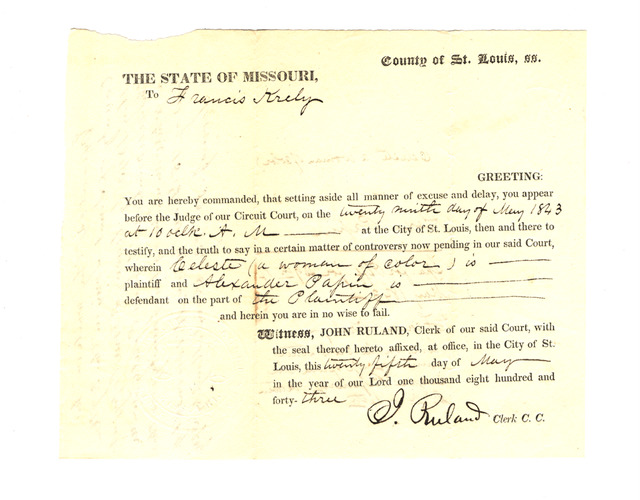 County of St. Louis, ss.
THE STATE OF MISSOURI,
To Francis Krely
GREETING:
You are hereby commanded, that setting aside all manner of excuse and delay, you appear
before the Judge of our Circuit Court, on the twenty ninth day of May 1843
at 10 oclk. A. M at the City of St. Louis, then and there to
testify, and the truth to say in a certain matter of controversy now pending in our said Court,
wherein Celeste (a woman of color) is
plaintiff and Alexander Papin is
defendant on the part of the Plaintiff
and herein you are in no wise to fail.
Witness, JOHN RULAND, Clerk of our said Court, with
the seal thereof hereto affixed, at office, in the City of St.
Louis, this twenty fifth day of May
in the year of our Lord one thousand eight hundred and
forty-three
J. Ruland Clerk C. C.